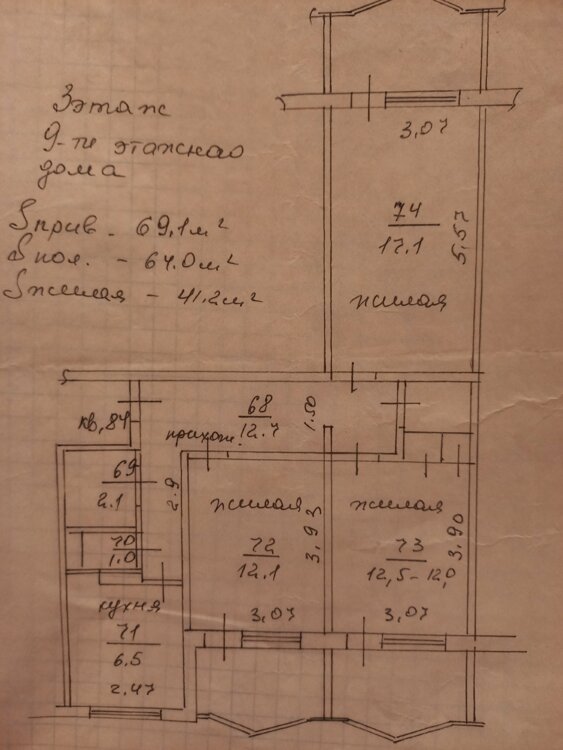 3 этаж
9-ти этажнао
дома
Sприв - 69,1м²
Sпол. - 64.0м²
Sжилая - 41.2м²
3,07
74
17.1
5,57
жилая
кв,84
68
12.7
1.50
прихож.
69
2.1
2.9
70
1.0
жилая
72
12.1
3,93
3.07
жилая
73
12,5-12,0
3,90
3,07
кухня
71
6.5
2.47